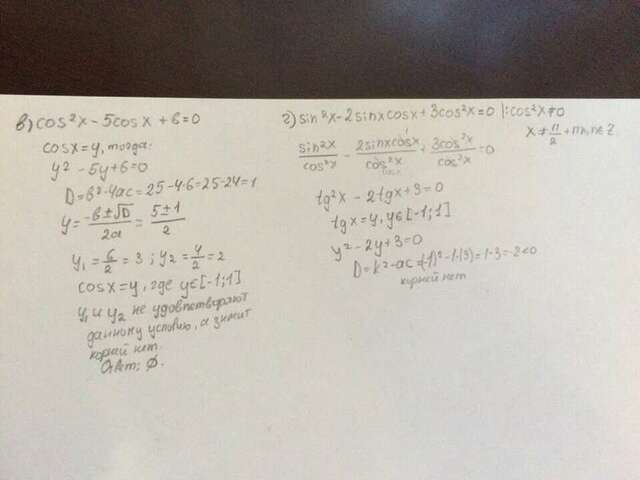 в) cos²x - 5cosx + 6 = 0
cosx = y, тогда:
y² - 5y + 6 = 0
D = b² - 4ac = 25 - 4·6 = 25 - 24 = 1
y = (-b ± √D)/2a = (5 ± 1)/2
y₁ = 6/2 = 3 ; y₂ = 4/2 = 2
cosx = y, где y∈[-1;1]
y₁ и y₂ не удовлетворяют
данному условию, а значит
корней нет.
Ответ: ∅.
г) sin²x - 2sinxcosx + 3cos²x = 0 |: cos²x ≠ 0
x ≠ π/2 + πn, n∈Z
sin²x/cos²x - 2sinxcosx/cos²x + 3cos²x/cos²x = 0
tg²x - 2tgx + 3 = 0
tgx = y, y∈[-1;1]
y² - 2y + 3 = 0
D = k² - ac = (-1)² - 1·(3) = 1 - 3 = -2 < 0
корней нет